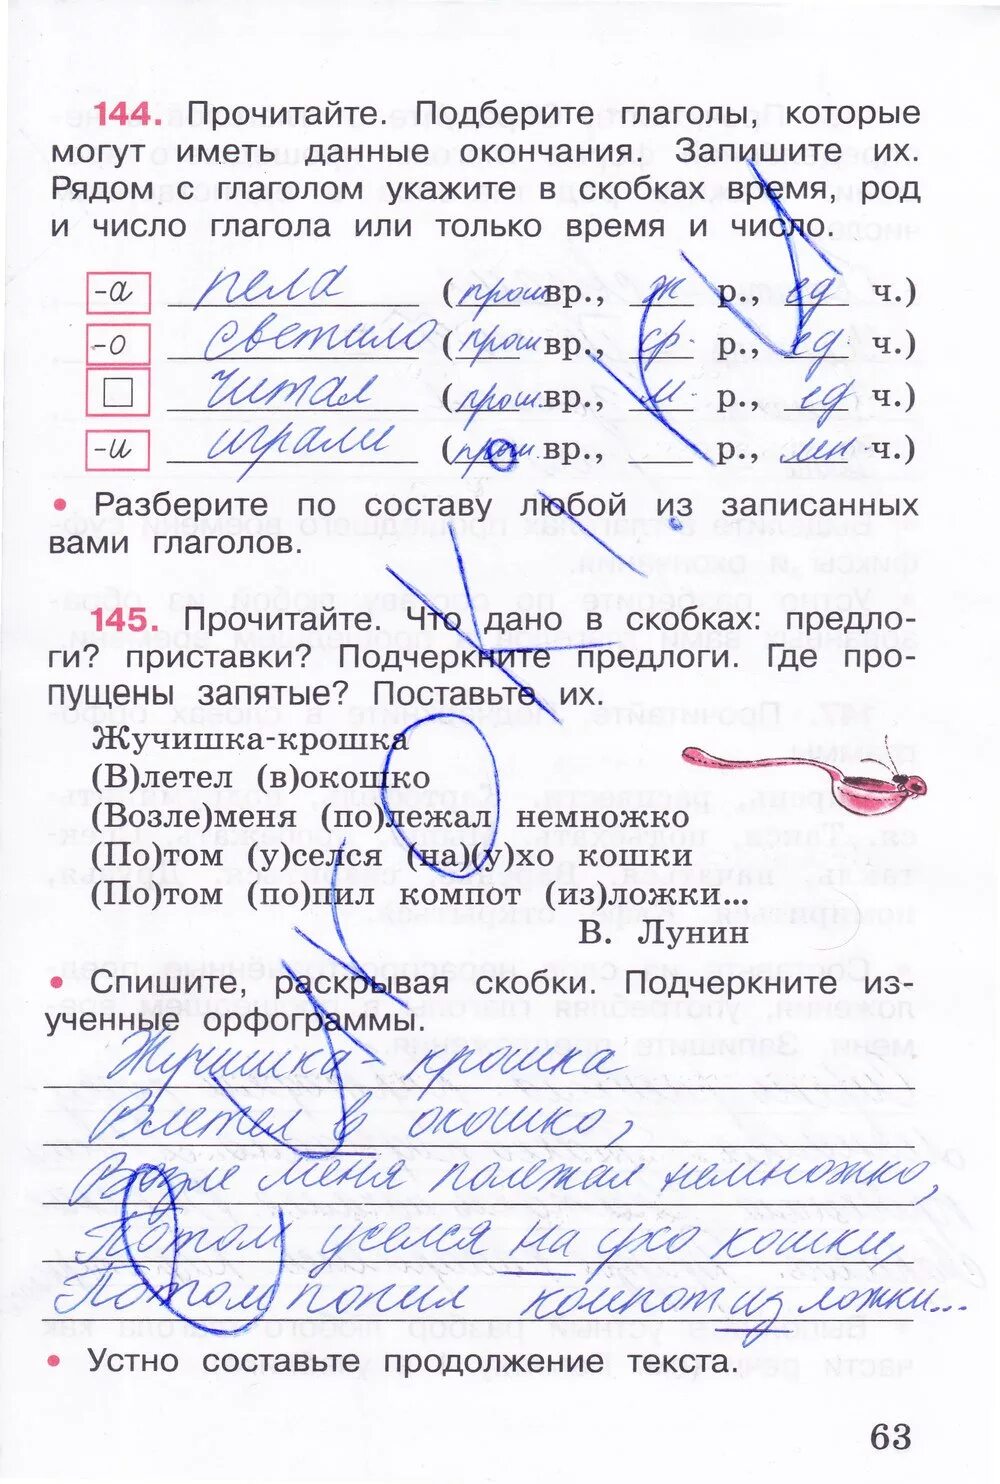 144. Прочитайте. Подберите глаголы, которые
могут иметь данные окончания. Запишите их.
Рядом с глаголом укажите в скобках время, род
и число глагола или только время и число.
-а пела (прош вр., ж р., ед ч.)
-о светило (прош вр., ср. р., ед ч.)
читал (прош. вр., м. р., ед ч.)
-и играли (прош. вр., р., мн ч.)
• Разберите по составу любой из записанных
вами глаголов.
145. Прочитайте. Что дано в скобках: предло-
ги? приставки? Подчеркните предлоги. Где про-
пущены запятые? Поставьте их.
Жучишка-крошка
(В)летел (в)окошко
(Возле)меня (по)лежал немножко
(По)том (у)селся (на)(у)хо кошки
(По)том (по)пил компот (из)ложки...
В. Лунин
• Спишите, раскрывая скобки. Подчеркните из-
ученные орфограммы.
Жучишка - крошка
Влетел в окошко,
Возле меня полежал немножко,
Потом уселся на ухо кошки,
Потом попил компот из ложки...
• Устно составьте продолжение текста.
63